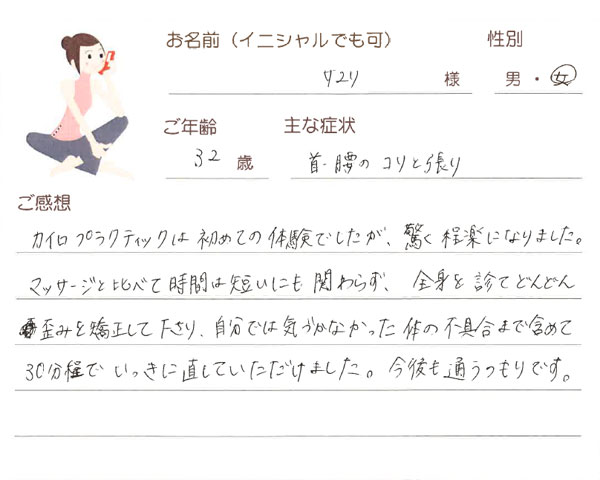 お名前（イニシャルでも可） 性別
様 男・女
ご年齢 主な症状
32 歳 首・腰の コリと張り
ご感想
カイロプラクティックは初めての体験でしたが、驚く程楽になりました。
マッサージと比べて時間は短いにも関わらず、全身を診てどんどん
歪みを矯正して下さり、自分では気づかなかった体の不具合まで含めて
30分程でいっきに直していただけました。今後も通うつもりです。